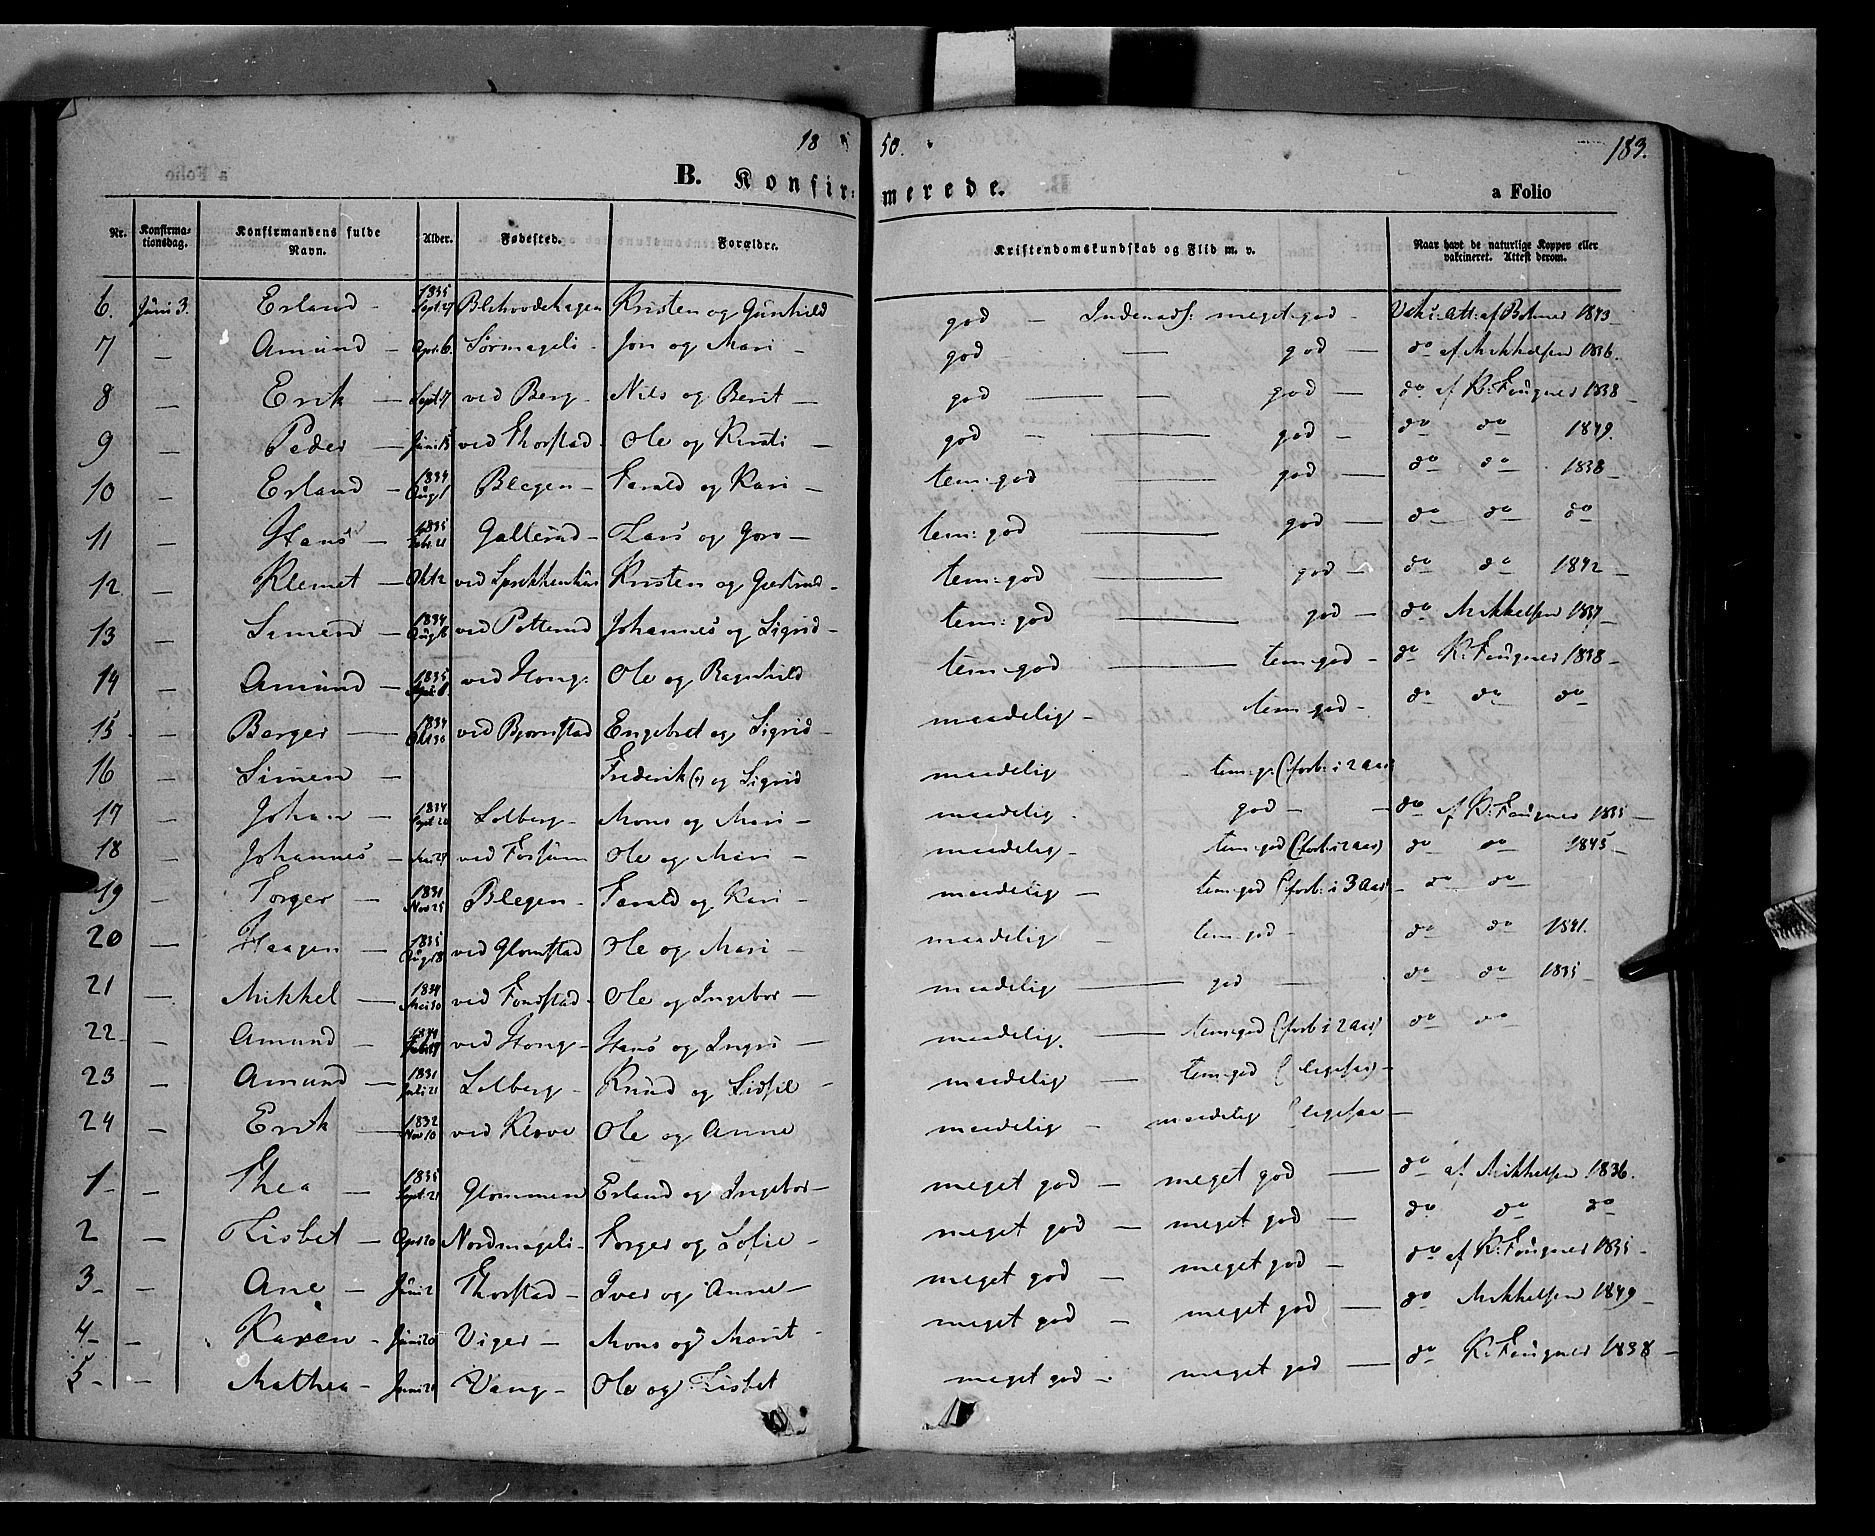 18 50. 183.
B. Konfir= merede. a Folio
Nr. Konfirma-tionsdag. Konfirmandens fulde Navn. Alder. Fødested. Forældre. Kristendomskundskab og Flid m. v. Naar havt de naturlige Kopper eller vaktineret. Attest derom.
6. Juni 3. Erland - 1835 Sept. 27 Kristen og Gunhild god - Indenadl: meget god - 1843
7 - Amund - Apr. 6. Sørmageli - Jon og Mari - god - god - do af Mikkelsen 1836.
8 - Erik - Sept 17 ved Berg - Nils og Berit - god - god - do af K. Fougner 1838 -
9 - Peder - Juni 15 ved Thorstad - Ole og Kirsti - god - god - do do 1849.
10 - Erland - 1834 Aug 1 Blegen - Farald og Kari - tem: god - god - do do 1838 -
11 - Hans - 1835 Febr. 21 Gallerud - Lars og Goro - tem: god - god - do do do
12 - Klemet - Okt 2 Kristen og Gertrud - tem: god - god - do do 1842 -
13 - Simen - 1834 ved Potterud Johannes og Sigrid - tem: god - god - do Mikkelsen 1837 -
14 - Amund - 1835 Sept. 8. ved Hong - Ole og Ragnhild tem: god - tem: god - do K. Fougner 1838 -
15 - Berger - 1834 Okt 30 ved Bjørnstad Engebret og Sigrid - maadelig - tem: god - do do do
16 - Simen - Frederik (+) og Sigrid maadelig - tem: g: (forb: i 2 aar)
17 - Johan - 1834 Sept 20 Solberg - Mons og Mari - maadelig - god - do af K. Fougner 1835 -
18 - Johannes - Mai 27 ved Forsum Ole og Mari - maadelig - tem: god (forb: i 2 aar) do do 1845 -
19 - Torger - 1831 Nov 25 Blegen - Farald og Kari - maadelig - tem: god (forb: i 3 aar) - do do
20 - Haagen - 1835 Aug 18 ved Glomstad Ole og Mari - maadelig - tem: god - do do 1841.
21 - Mikkel - 1834 Mai 30 ved Fonstad - Ole og Ingebor - maadelig - god - do do 1835 -
22 - Amund - ved Hong - Hans og Ingri - maadelig - tem: god (forb: i 2 aar) do do
23 - Amund - 1831 Juli 21 Solberg - Knud og Sidsel - maadelig - tem: god (ligesaa) -
24 - Erik - 1832 Nov 10 ved Kløve Ole og Anne maadelig - maadelig (ligesaa -
1 - - Thea - 1835 Sept. 21 Glommen Erland og Ingebor - meget god - meget god - do af Mikkelsen 1836.
2 - Lisbet - Apr 20 Nordmageli - Torger og Sofie - meget god - meget god - do do do
3 - - Ane - Juni 2 Thorstad - Iver og Anne - meget god - meget god - do af K. Fougner 1835 -
4 - - Karen - Juni 20 Viger - Mons og Marit - meget god - meget god - do Mikkelsen 1849 -
5 - - Mathea - Juni 21 Vang - Ole og Lisbet meget god - meget god - do K. Fougner 1838 -